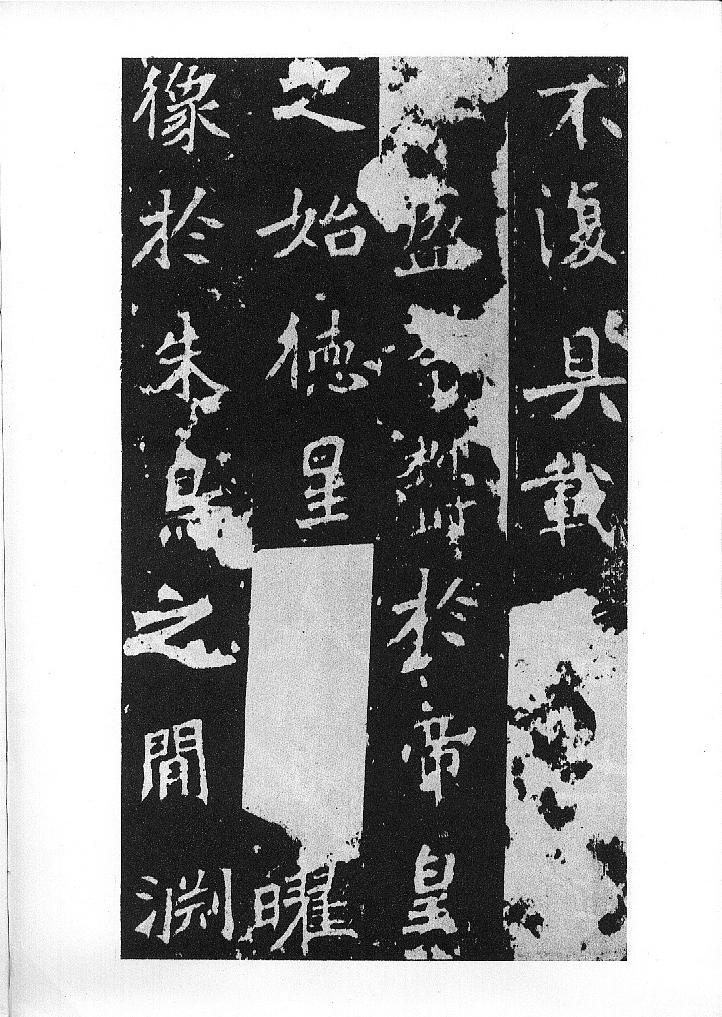 不復具載
鬱於帝皇
之始德星曜
像於朱鳥之間淵